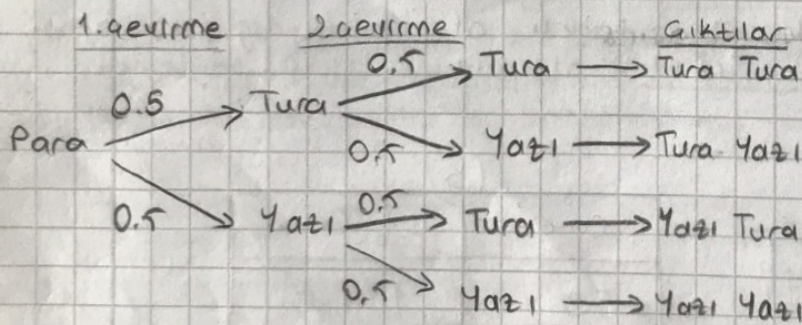 1. çevirme 2. çevirme Çıktılar
0.5 Tura → Tura Tura
0.5 Tura
Para 0.5 Yazı → Tura Yazı
0.5 Yazı 0.5 Tura → Yazı Tura
0.5 Yazı → Yazı Yazı